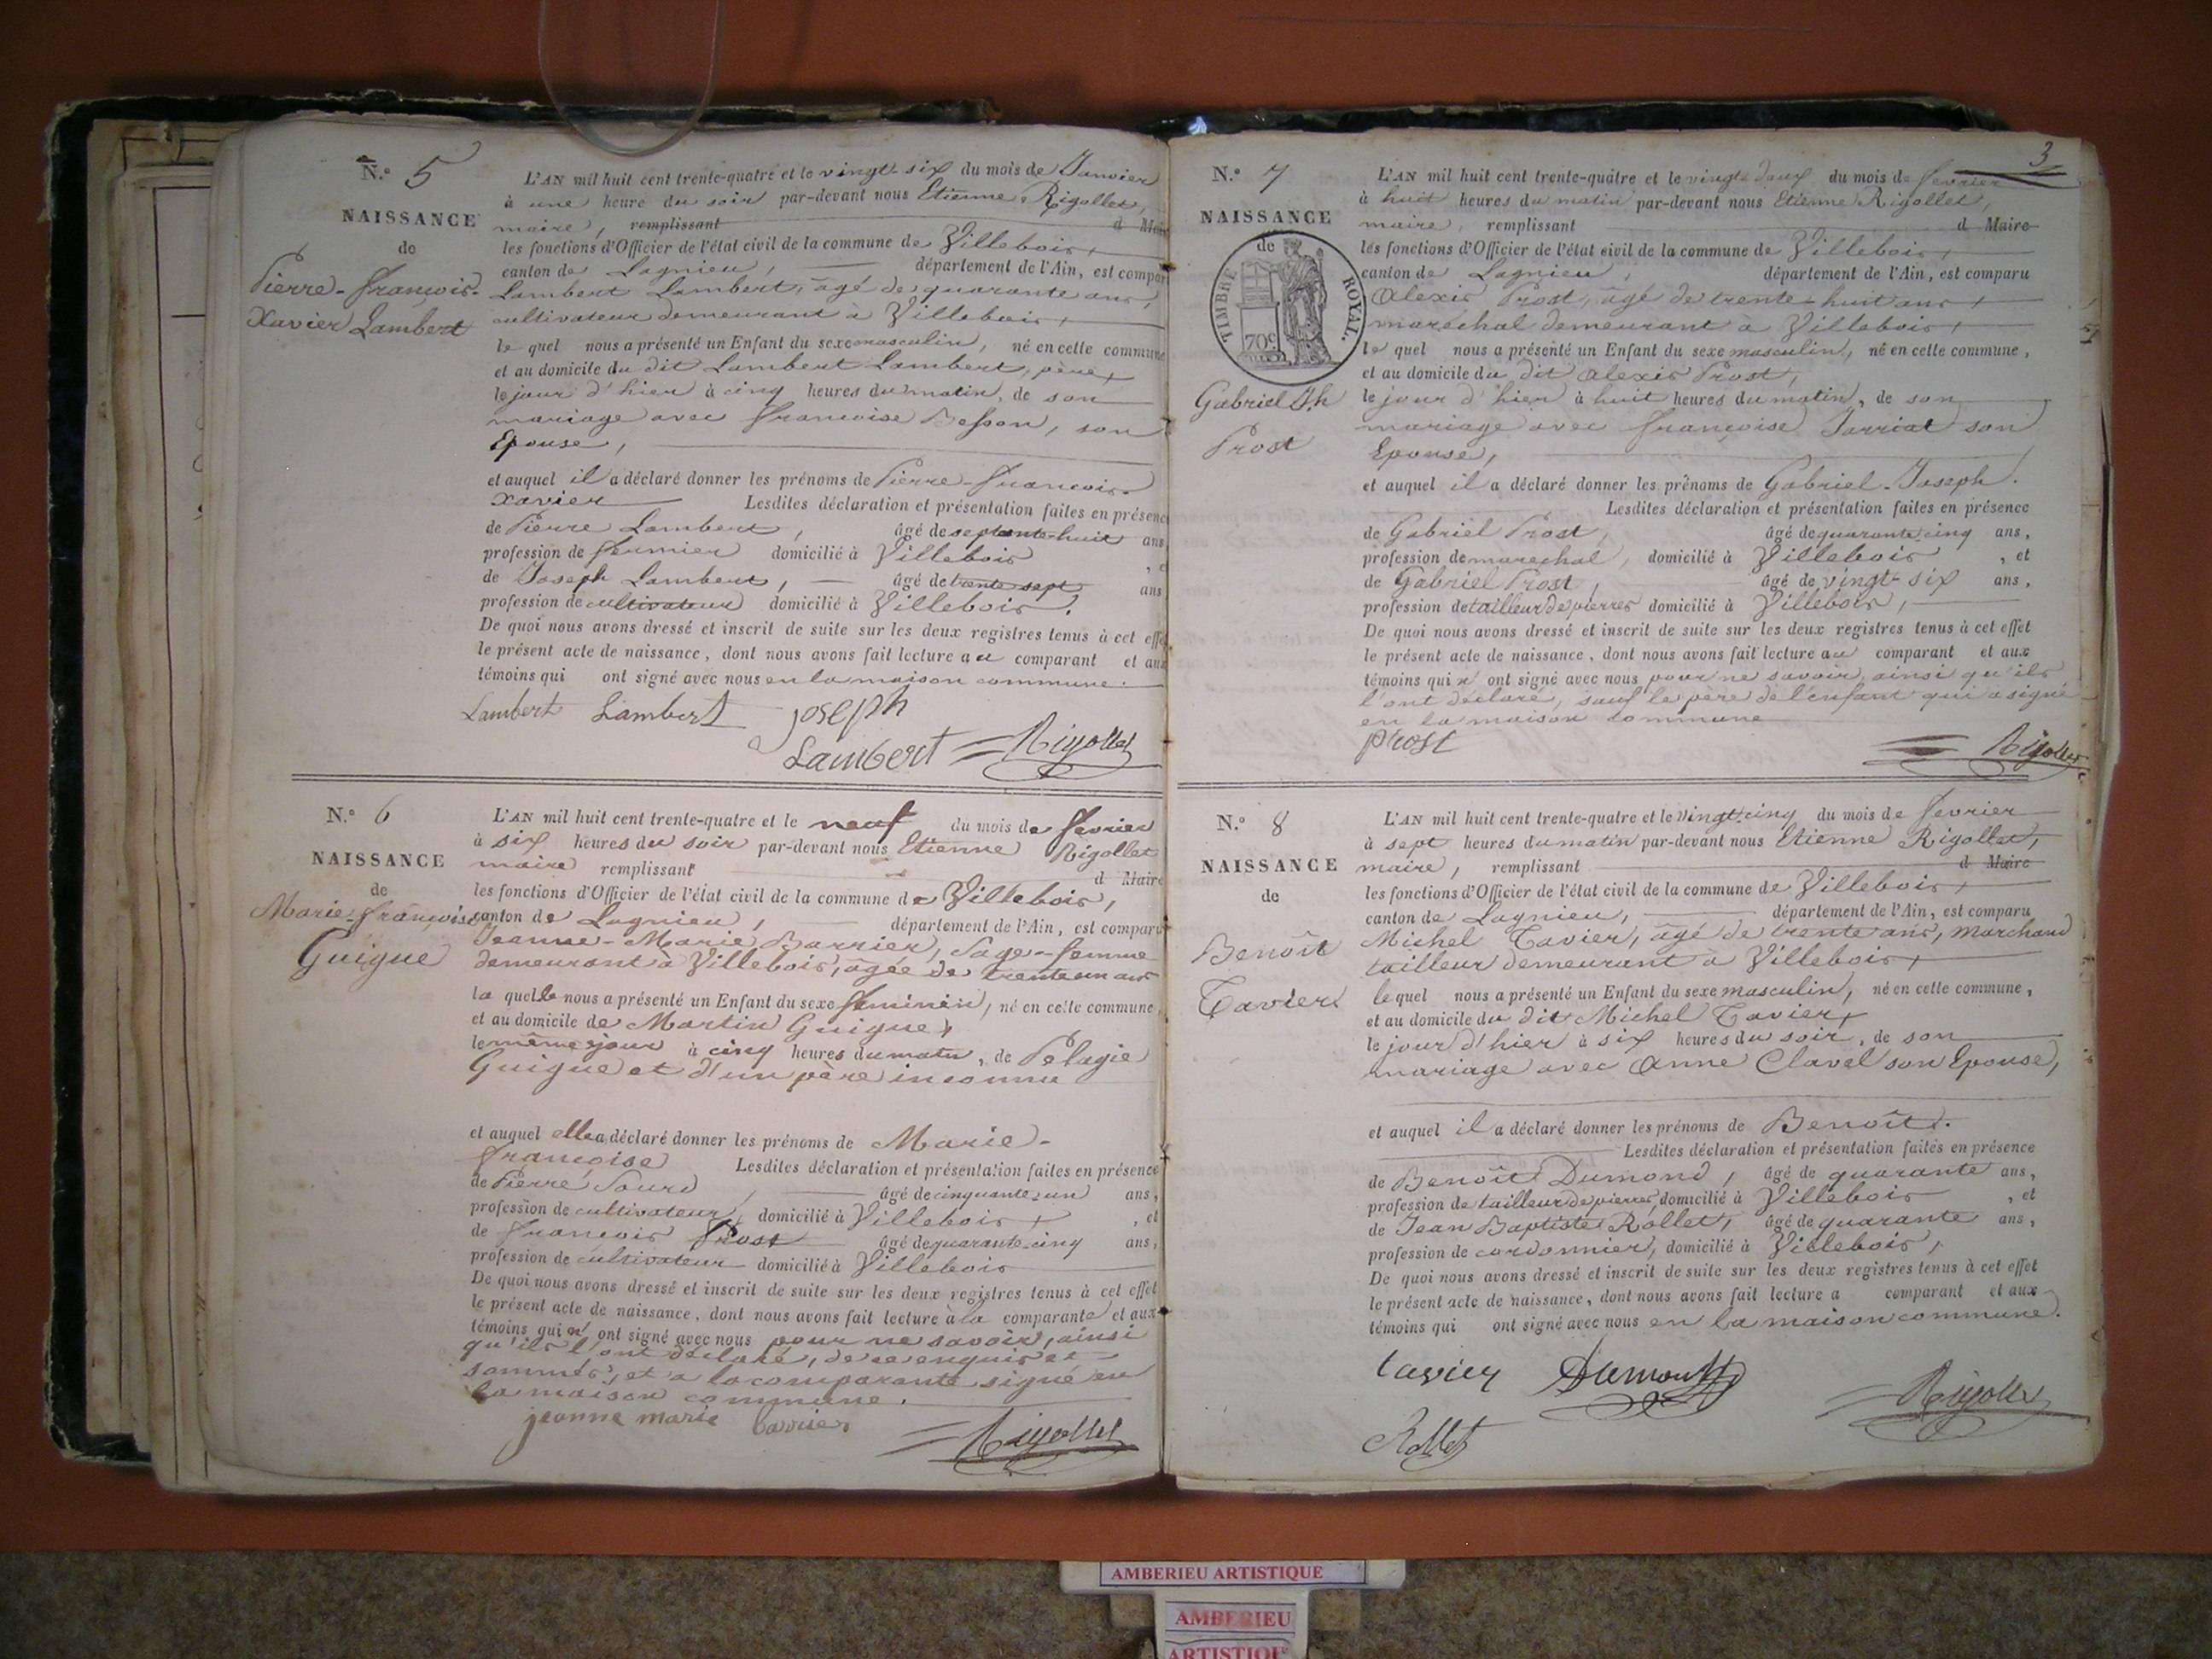 N.o 5
NAISSANCE
de
Pierre-François-
Xavier Lambert
L'AN mil huit cent trente-quatre et le vingt-six du mois de Janvier
à une heure du soir par-devant nous Etienne Rigollet,
maire, remplissant d Maire
les fonctions d'Officier de l'état civil de la commune de Villebois,
canton de Lagnieu, département de l'Ain, est compar
Lambert Lambert, âgé de quarante ans,
cultivateur demeurant à Villebois,
le quel nous a présenté un Enfant du sexe masculin, né en cette commune
et au domicile du dit Lambert Lambert, père,
le jour d'hier à cinq heures du matin, de son
mariage avec françoise Besson, son
Epouse,
et auquel il a déclaré donner les prénoms de Pierre-françois-
Xavier Lesdites déclaration et présentation faites en présence
de Pierre Lambert, âgé de septante-huit ans
profession de fermier domicilié à Villebois
de Joseph Lambert, âgé de trente sept ans
profession de cultivateur domicilié à Villebois.
De quoi nous avons dressé et inscrit de suite sur les deux registres tenus à cet effet
le présent acte de naissance, dont nous avons fait lecture au comparant et aux
témoins qui ont signé avec nous en la maison commune.
Lambert Lambert joseph
Lambert Rigollet
N.o 6
NAISSANCE
de
Marie-françoise
Guigue
L'AN mil huit cent trente-quatre et le neuf du mois de fevrier
à six heures du soir par-devant nous Etienne Rigollet
maire remplissant d Maire
les fonctions d'Officier de l'état civil de la commune de Villebois,
canton de Lagnieu, département de l'Ain, est comparu
Jeanne-Marie Barrier, Sage-femme
demeurant à Villebois, âgée de trente un ans
la quelle nous a présenté un Enfant du sexe feminin, né en cette commune,
et au domicile de Martin Guigue,
le même jour à cinq heures du matin, de Pelagie
Guigue et d'un père inconnu
et auquel elle a déclaré donner les prénoms de Marie-
françoise Lesdites déclaration et présentation faites en présence
de Pierre Sourd, âgé de cinquante-un ans,
profession de cultivateur, domicilié à Villebois, et
de françois Prost âgé de quarante-cinq ans,
profession de cultivateur domicilié à Villebois
De quoi nous avons dressé et inscrit de suite sur les deux registres tenus à cet effet
le présent acte de naissance, dont nous avons fait lecture à la comparante et aux
témoins qui n' ont signé avec nous pour ne savoir, ainsi
qu'ils l'ont déclaré, de ce enquis et
sommés, et a la comparante signé en
la maison commune.
jeanne marie barrier
Rigollet
3
N.o 7
NAISSANCE
de
TIMBRE ROYAL.
70c
Gabriel Jh
Prost
L'AN mil huit cent trente-quatre et le vingt deux du mois de fevrier
à huit heures du matin par-devant nous Etienne Rigollet,
maire, remplissant d Maire
les fonctions d'Officier de l'état civil de la commune de Villebois,
canton de Lagnieu, département de l'Ain, est comparu
Alexis Prost, âgé de trente-huit ans,
maréchal demeurant à Villebois,
le quel nous a présenté un Enfant du sexe masculin, né en cette commune,
et au domicile du dit Alexis Prost,
le jour d'hier à huit heures du matin, de son
mariage avec françoise Jarriat son
Epouse,
et auquel il a déclaré donner les prénoms de Gabriel-Joseph.
Lesdites déclaration et présentation faites en présence
de Gabriel Prost, âgé de quarante cinq ans,
profession de marechal, domicilié à Villebois, et
de Gabriel Prost, âgé de vingt-six ans,
profession de tailleur de pierres domicilié à Villebois,
De quoi nous avons dressé et inscrit de suite sur les deux registres tenus à cet effet
le présent acte de naissance, dont nous avons fait lecture au comparant et aux
témoins qui n' ont signé avec nous pour ne savoir, ainsi qu'ils
l'ont déclaré, sauf le père de l'enfant qui a signé
en la maison commune
prost
Rigollet
N.o 8
NAISSANCE
de
Benoît
Tavier
L'AN mil huit cent trente-quatre et le vingt-cinq du mois de fevrier
à sept heures du matin par-devant nous Etienne Rigollet,
maire, remplissant d Maire
les fonctions d'Officier de l'état civil de la commune de Villebois,
canton de Lagnieu, département de l'Ain, est comparu
Michel Tavier, âgé de trente ans, marchand
tailleur demeurant à Villebois,
lequel nous a présenté un Enfant du sexe masculin, né en cette commune,
et au domicile du dit Michel Tavier,
le jour d'hier à six heures du soir, de son
mariage avec Anne Clavel son Epouse,
et auquel il a déclaré donner les prénoms de Benoît.
Lesdites déclaration et présentation faites en présence
de Benoît Dumond, âgé de quarante ans,
profession de tailleur de pierres, domicilié à Villebois, et
de Jean Baptiste Rollet, âgé de quarante ans,
profession de cordonnier, domicilié à Villebois,
De quoi nous avons dressé et inscrit de suite sur les deux registres tenus à cet effet
le présent acte de naissance, dont nous avons fait lecture a comparant et aux
témoins qui ont signé avec nous en la maison commune.
tavier Dumont
Rigollet
Rollet
AMBERIEU ARTISTIQUE
AMBERIEU
ARTISTIQUE